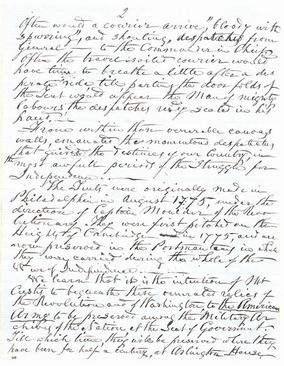 2
often would a courier arrive, "bloody with
spurring", and shouting, despatches from
General — to the Commander in Chief
often the travel soiled courier would
have time to breathe a little after a des
perate ride, till parting the door folds of
the tent would appear the Man of mighty
labours, the despatches sealed in his
hand".
From within those venerable canvas
walls, emanated the momentous despatches
that guided the Destinies of our Country in
the most awful period of the Struggle for
Independence. —
The Tents were originally made in
Philadelphia in August 1775, under the
direction of Captain Moulder of the
They were first pitched on the
Heights of Cambridge 1775, and are
now preserved in the Portmanteaus in which
they were carried during the whole of the
War of Independence.
We learn that it is the intention of Mr
Custis to bequeath these venerated relics of
the Revolution and of Washington to the American
Army to be preserved among the Military Ar
chives of the Nation at the Seat of Government.
Till which time they will be preserved where they
have been for half a century, at Arlington House